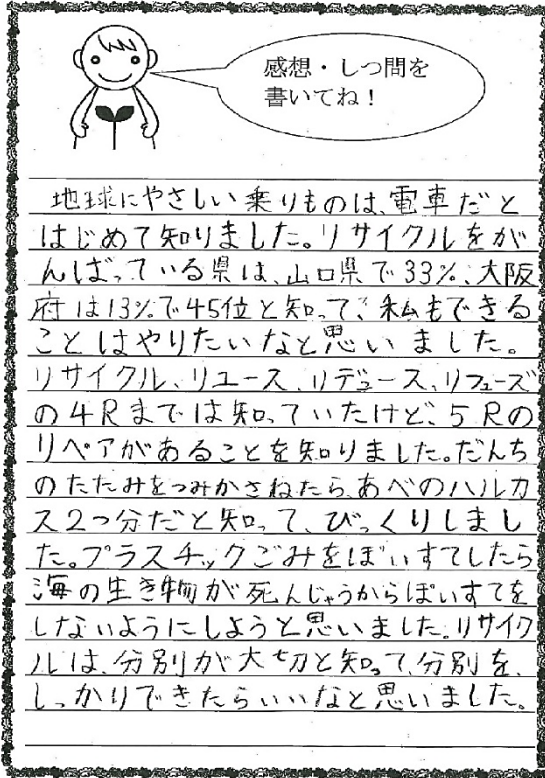 感想・しつ問を
書いてね！
地球にやさしい乗りものは、電車だと
はじめて知りました。リサイクルをが
んばっている県は、山口県で33%、大阪
府は13%で45位と知って、私もできる
ことはやりたいなと思いました。
リサイクル、リユース、リデュース、リフューズ
の4Rまでは知っていたけど、5Rの
リペアがあることを知りました。だんち
のたたみをつみかさねたら、あべのハルカ
ス2つ分だと知って、びっくりしまし
た。プラスチックごみをぽいすてしたら
海の生き物が死んじゃうからぽいすてを
しないようにしようと思いました。リサイク
ルは、分別が大切と知って、分別を、
しっかりできたらいいなと思いました。